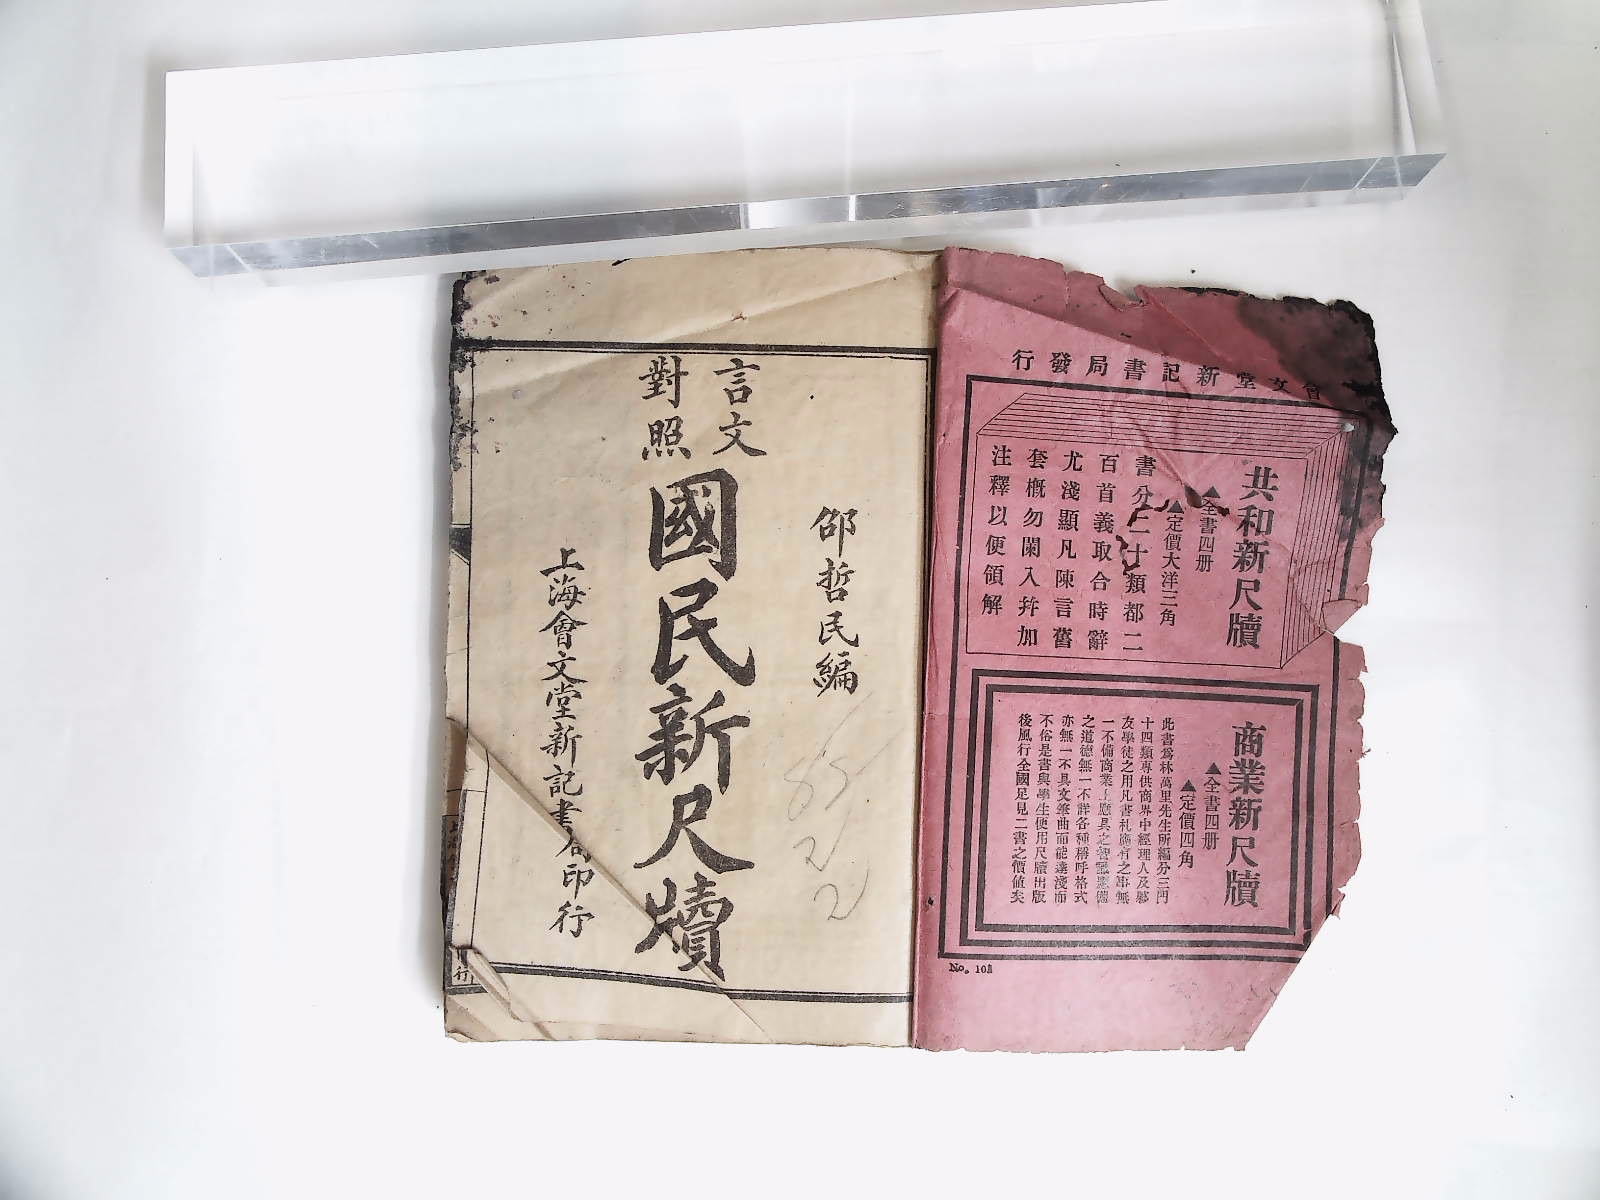 會文堂新記書局發行
共和新尺牘
▲全書四册
▲定價大洋三角
書分二十類都二
百首義取合時辭
尤淺顯凡陳言舊
套概勿闌入幷加
注釋以便領解
商業新尺牘
▲全書四册
▲定價四角
此書爲林萬里先生所編分三門
十四類専供商界中經理人及夥
友學徒之用凡書札應有之事無
一不備商業上應具之智識應備
之道德無一不詳各種稱呼格式
亦無一不具文筆曲而能達淺而
不俗是書與學生便用尺牘出版
後風行全國足見二書之價値矣
No. 103
邵哲民編
言文
對照
國民新尺牘
上海會文堂新記書局印行
85
2
2
行